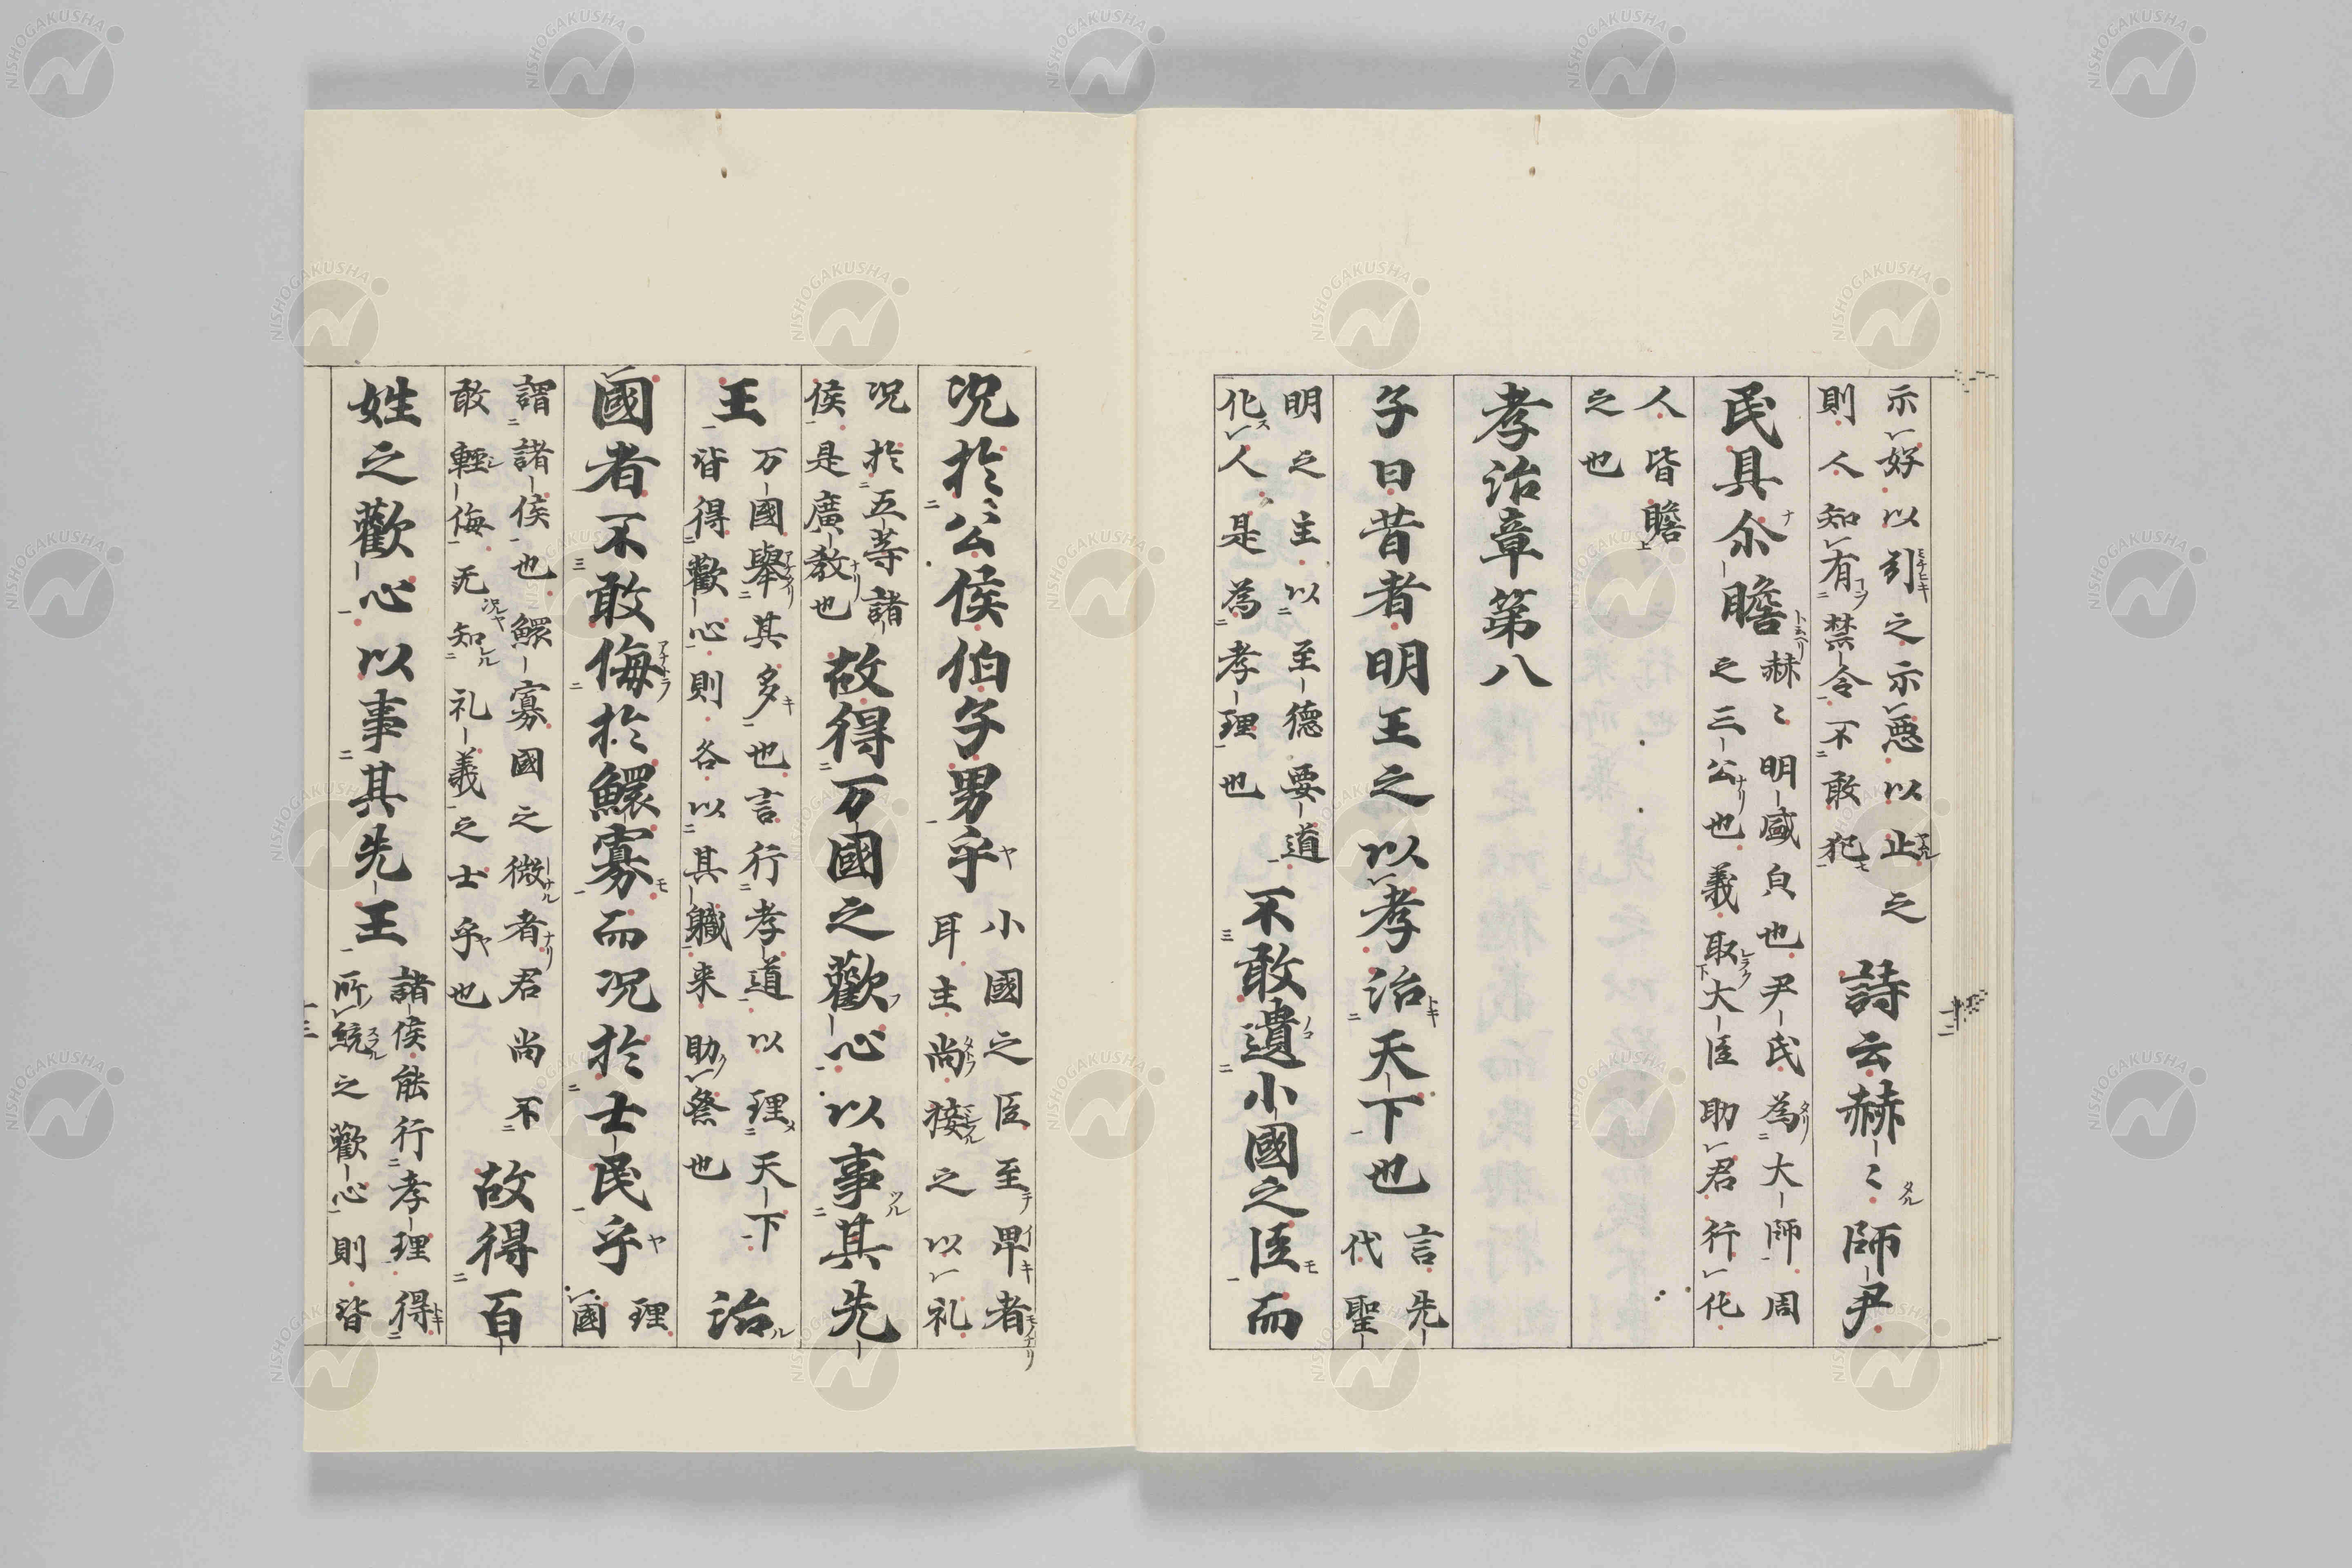 示好以引之示惡以止之
則人知有禁令不敢犯
詩云赫〻師尹
民具尒瞻
赫〻明盛皃也尹氏為大師周
之三公也義取大臣助君行化
人皆瞻
之也
孝治章第八
子曰昔者明王之以孝治天下也
言先
代聖
明之主以至德要道
化人是為孝理也
不敢遺小國之臣而
况於公侯伯子男乎
小國之臣至卑者
耳主尚接之以礼
况於五等諸
侯是廣敎也
故得万國之歡心以事其先
王
万國舉其多也言行孝道以理天下
皆得歡心則各以其軄来助祭也
治
國者不敢侮於鰥寡而况於士民乎
理
國
謂諸侯也鰥寡國之微者君尚不
敢輕侮况知礼義之士乎也
故得百
姓之歡心以事其先王
諸侯能行孝理得
所統之歡心則皆
十二
十三
NISHOGAKUSHA